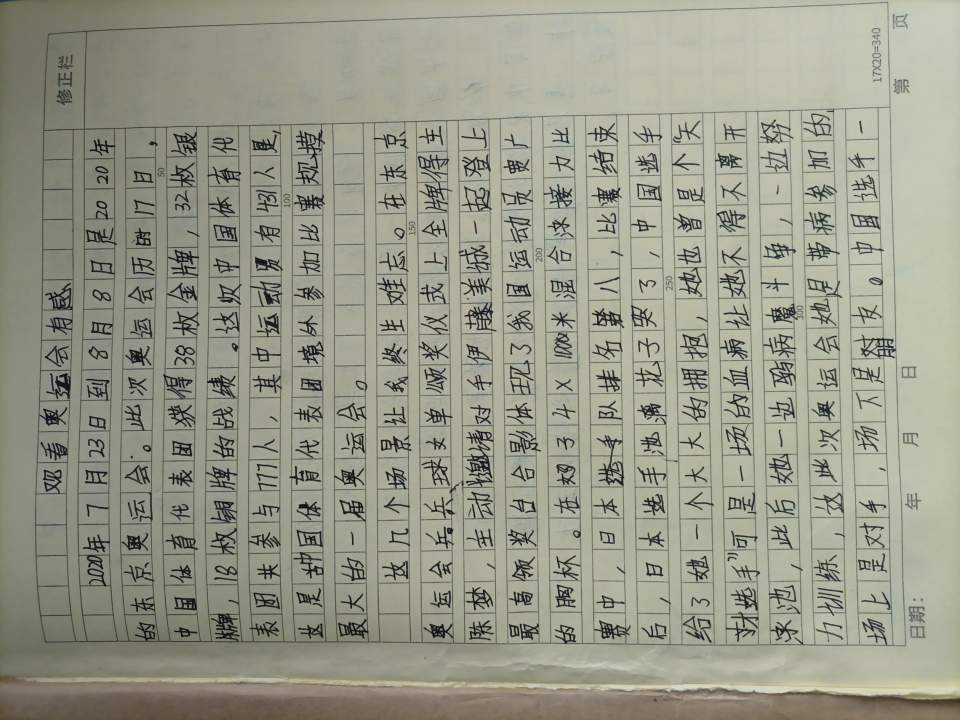 观看奥运会有感
2020年7月23日到8月8日是2020年
的东京奥运会。此次奥运会历时17日,
中国体育代表团获得38枚金牌,32枚银
牌,18枚铜牌的战绩。这次中国体育代
表团共参与777人,其中运动员有431人是,
这是中国体育代表团境外参加比赛规摸
最大的一届奥运会。
故几个场景让我终生难忘。在东京
奥运会乒乓球女单颁奖仪式上全牌得主
陈梦,主动邀请对手伊藤美城一起登上
最高领奖台合影体现了我国运动员宽广
的胸怀。在妇子4X100米混合泳接力比
赛中,日本选手队排名第八,比赛结束
后,日本选手池漓花子哭了,中国选手
给了她一个大大的拥抱,她也曾是个“天
才选手”可是一场的血病让她不得不离开
泳池,此后她一边与病魔斗争,一边努
力训练,这此次奥运会她是带病参加的,
场上是对手,场下是朋友。中国选手一
修正栏
50
100
150
200
250
300
17X20=340
日期: 年 月 日 第 页